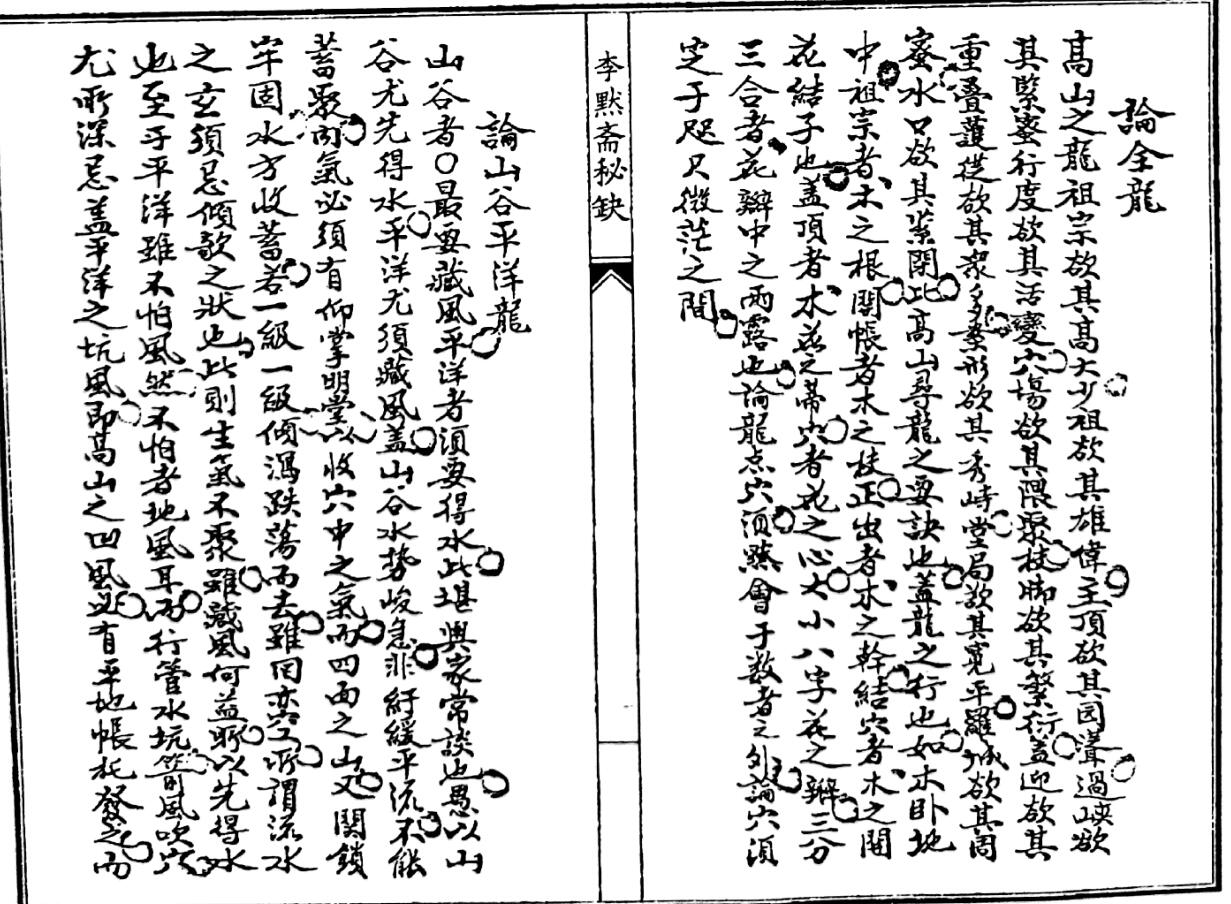 論全龍
高山之龍祖宗欲其高大少祖欲其雄偉主頂欲其圓聳過峽欲
其緊蜜行度欲其活變穴場欲其隈聚枝脚欲其繁衍蓋迎欲其
重叠護從欲其衆多案形欲其秀峙堂局欲其寬平羅城欲其周
蜜水口欲其紧閉此高山尋龍之要訣也蓋龍之行也如木卧地
中祖宗者木之根開帳者木之枝正出者木之幹結穴者木之開
花結子也蓋頂者木花之蒂穴者花之心大小八字花之瓣三分
三合者花瓣中之雨露也論龍点穴須黙會于数者之外論穴須
定于咫尺微茫之間
李默斋秘缺
論山谷平洋龍
山谷者〇最要藏風平洋者須要得水此堪輿家常談也愚以山
谷尤先得水平洋尤須藏風盖山谷水势峻急非紆緩平流不能
蓄聚内氣必須有仰掌明堂以收穴中之氣而四面之山又関鎖
牢固水方收蓄若一級一級傾瀉跌蕩而去雖周亦空所謂流水
之玄須忌傾欹之狀也此則生氣不聚雖藏風何益所以先得水
也至于平洋雖不怕風然不怕者地風耳而行管水坑管風吹穴
尤所深忌盖平洋之坑風即高山之凹風必有平地帳托發之而